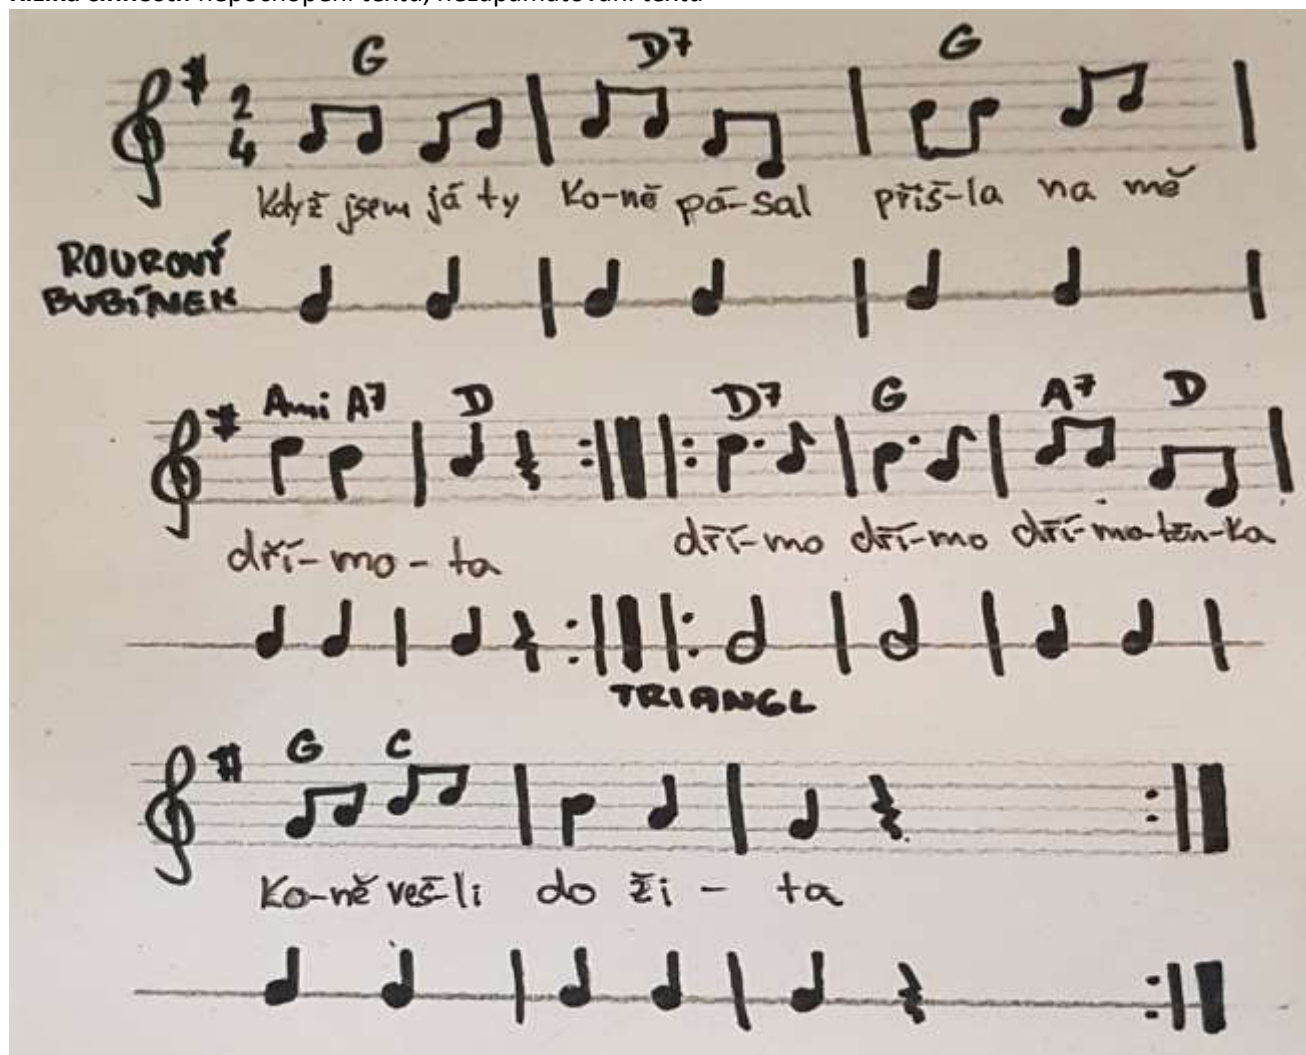 G D7 G
2
4
Když jsem já ty ko-ně pá-sal přiš-la na mě
ROUROVÝ
BUBÍNEK
Ami A7 D D7 G A7 D
dří-mo-ta dří-mo dří-mo dří-mo-těn-ka
TRIANGL
G C
Ko-ně veš-li do ži-ta